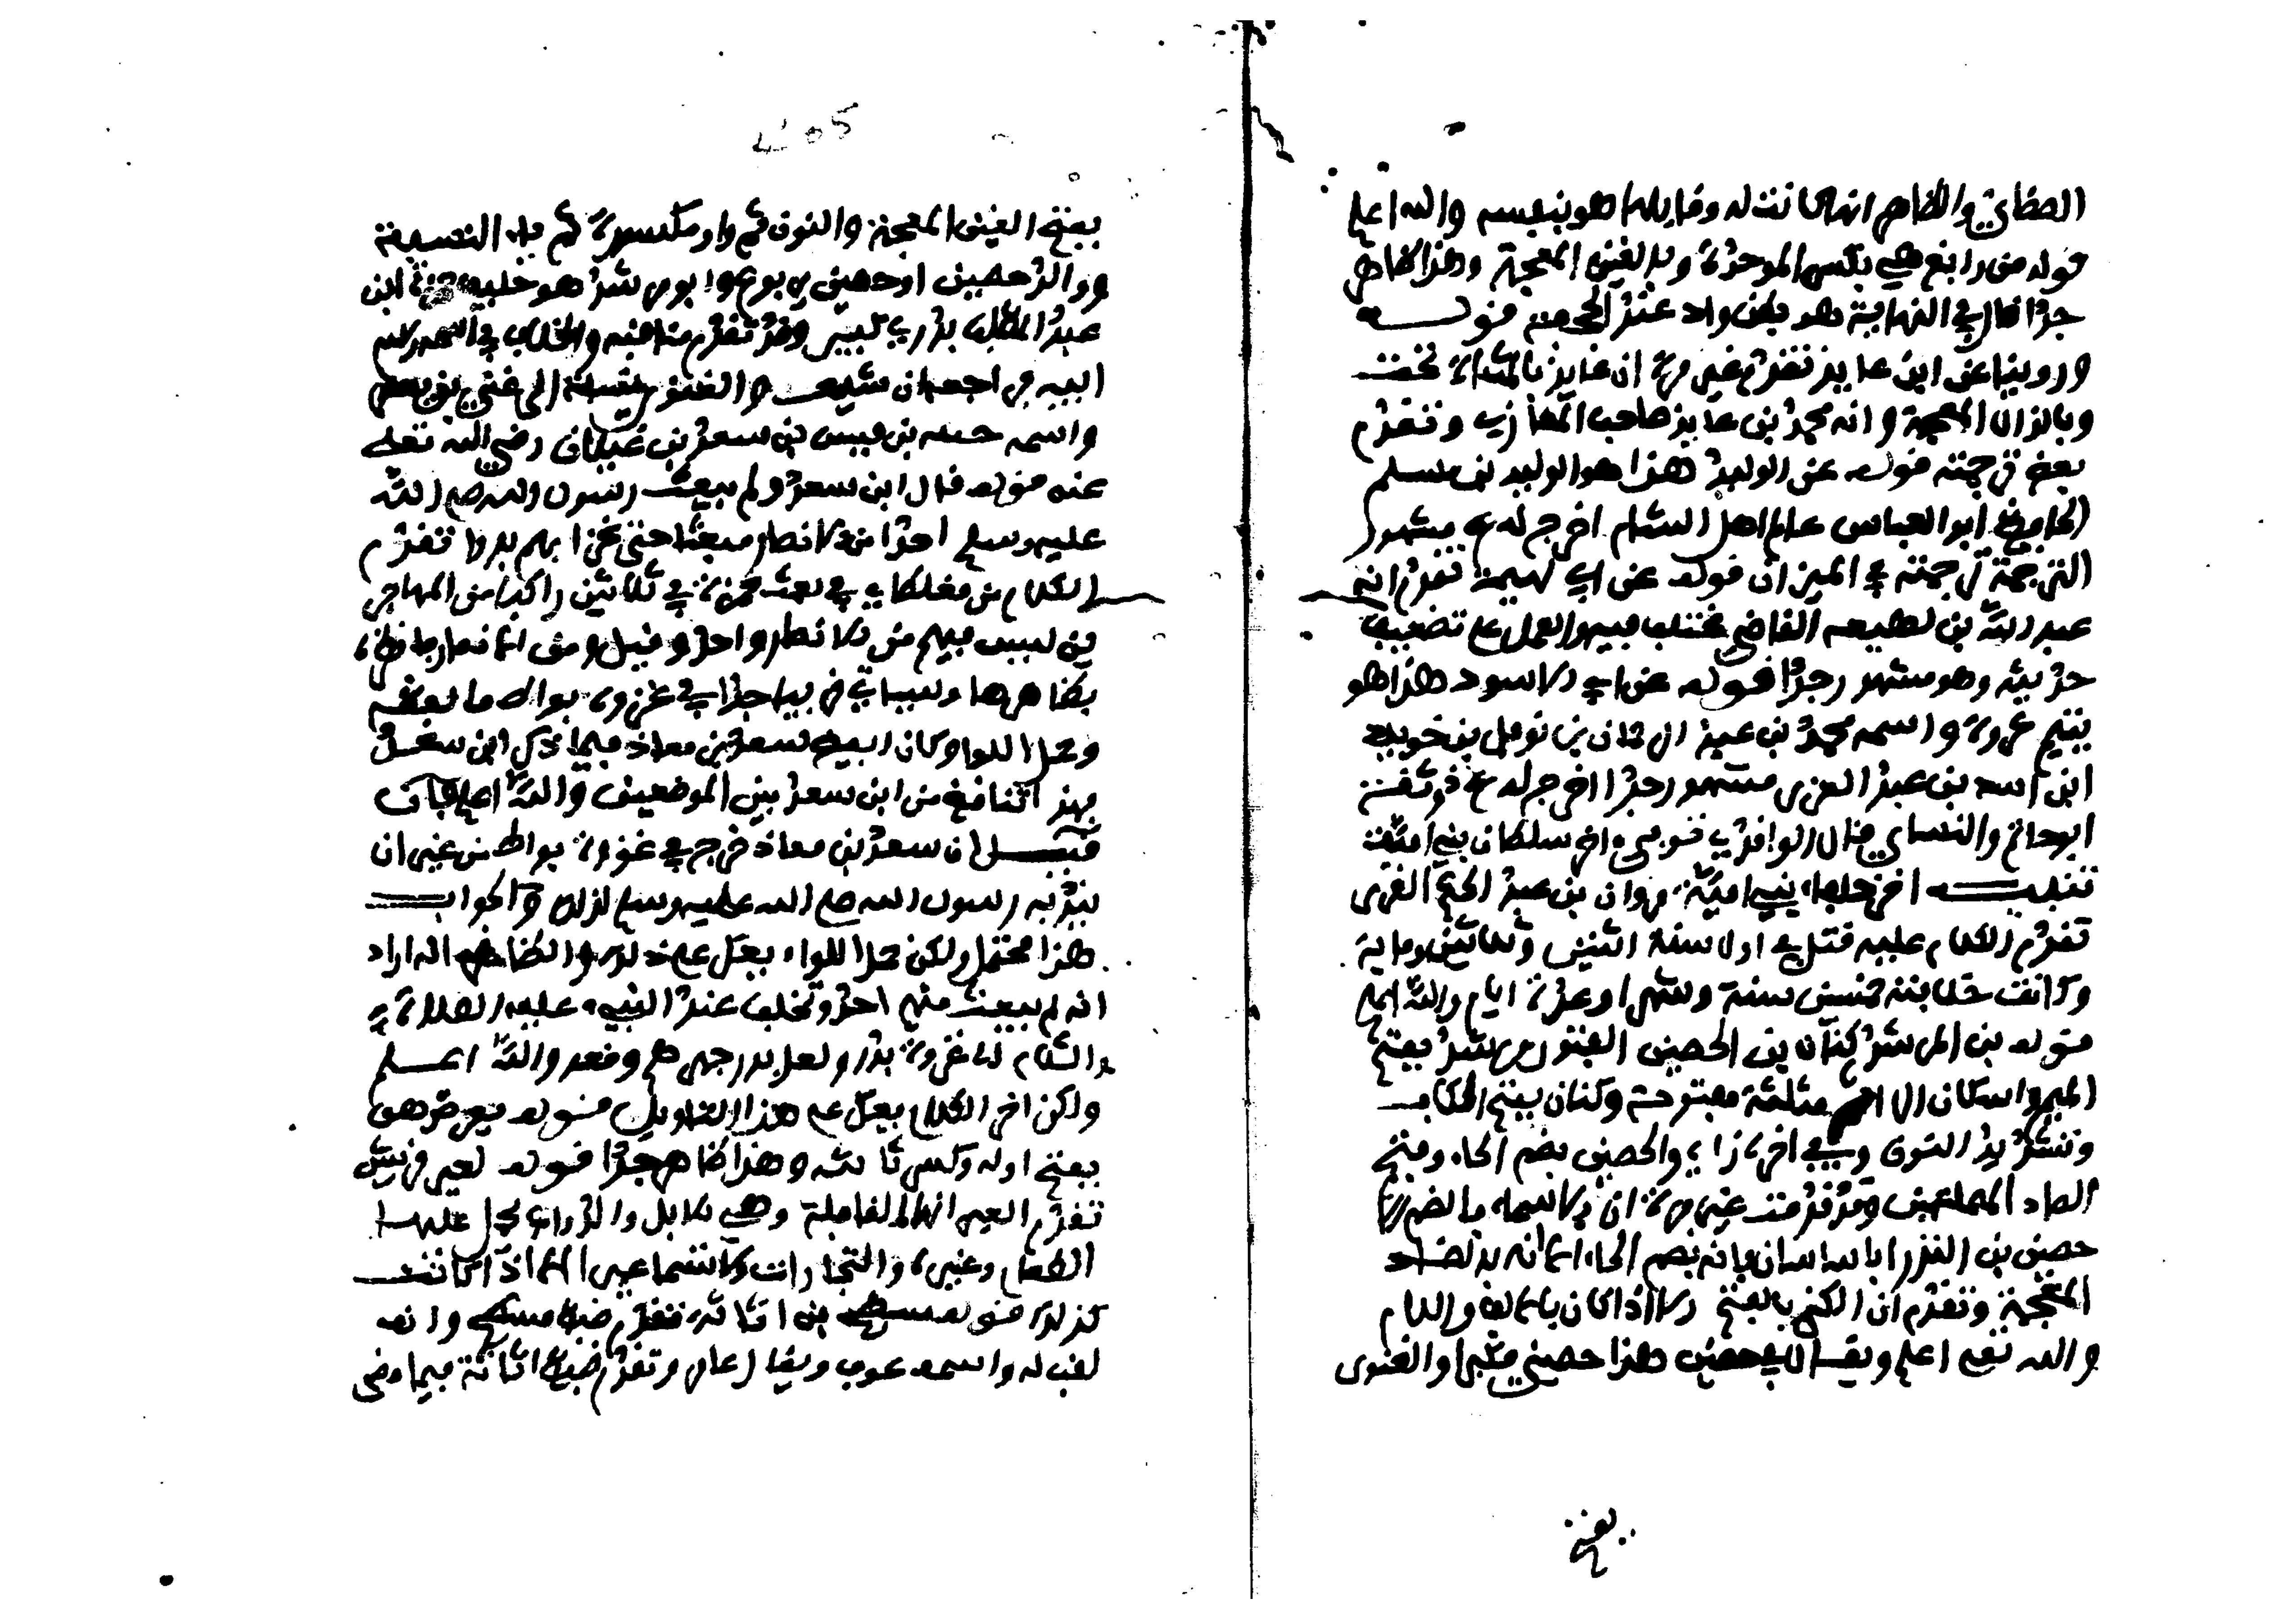 الصفائح والظاهر انها كانت له وقايلها هو بنفسه والله اعلم
قوله من رابغ هي بكسر الموحدة وبالغين المعجمة وهذا ظاهر
جدا قال في النهاية هو بطن واد عند الجحفة قوله
وروينا عن ابن عايذ تقدم غير مرة ان عايذ بالمثناة تحت
وبالذال المعجمة وانه محمد بن عايذ صاحب المغازي وتقدم
بعض ترجمته قوله عن الوليد هذا هو الوليد بن مسلم
الحافظ ابو العباس عالم اهل الشام اخرج له ع مشهور
الترجمة ترجمته في الميزان قوله عن ابن لهيعة تقدم انه
عبد الله بن لهيعة القاضي مختلف فيه والعمل على تضعيف
حديثه وهو مشهور جدا قوله عن ابي الاسود هذا هو
يتيم عروة واسمه محمد بن عبد الرحمان بن نوفل بن خويلد
ابن اسد بن عبد العزى مشهور جدا اخرج له ع وثقه
ابو حاتم والنسائي قال الواقدي توفي في اخر سلطان بني امية
تنبيه اخر خلفاء بني امية مروان بن عبد الحكم
تقدم الكلام عليه قتل في اول سنة اثنين وثلاثين وماية
وكانت خلافته خمس سنة وشهرا وعدة ايام والله اعلم
قوله بن المرثد كناز بن الحصين الغنوي مرثد بفتح
الميم واسكان الراء ثم مثلثة مفتوحة وكناز بفتح الكاف
وتشديد النون وفي اخره زاي والحصين بضم الحاء وفتح
الصاد المهملتين وقد قدمت غير مرة ان الاسماء بالضم الا
حصين بن المنذر ابا ساسان فانه بضم الحاء الا انه بالضاد
المعجمة وتقدم ان الكنى بالفتح الا اذا كان بالالف واللام
والله تعلى اعلم ويقال في حصين هذا حصن مكبرا والغنوي
بفتح
بفتح الغين المعجمة والنون ثم واو مكسورة ثم ياء النسبة
ووالد حصين او حصن يربوع وابو مرثد هو حليف حمزة ابن
عبد المطلب بدري كبير وقد تقدم
واسمه بن قيس بن سعد بن غيلان رضي الله تعلى
عنه قوله قال ابن سعد ولم يبعث رسول الله صلى الله
عليه وسلم احدا من الانصار مبعثا حتى غزا بهم بدرا تقدم
الكلام من مغلطاي في بعث حمزة في ثلاثين راكبا من المهاجرين
ليس فيهم من الانصار واحد وقيل ومن الانصار
بظاهرها وسياتي قريبا جدا في غزوة بواط ما لفظه
وحمل اللوا وكان ابيض سعد بن معاذ فيما ذكر ابن سعد
بهذا تناقض من ابن سعد بين الموضعين والله اعلم فان
قيل ان سعد بن معاذ خرج في غزوة بواط من غير ان
يندبه رسول الله صلى الله عليه وسلم لذلك والجواب
هذا محتمل ولكن حمل اللواء يعكر على ذلك والظاهر انه اراد
انه لم يبعث منهم احد وتخلف عند النبي عليه الصلاة
والسلام الى غزوة بدر ولعل بدر وقعد والله اعلم
ولكن اخر الكلام يعكر على هذا التاويل قوله يعرض هو
بفتح اوله وكسر ثالثه وهذا ظاهر جدا قوله لعير قريش
تقدم العير انها القافلة وهي الابل والدواب تحمل عليها
الطعام وغيره والتجارات ولا تسما عيرا الا اذا كانت
كذلك قوله مسطح بن اثاثة تقدم ضبط مسطح وانه
لقب له واسمه عوف ويقال عامر وتقدم ضبط اثاثة فيما مضى